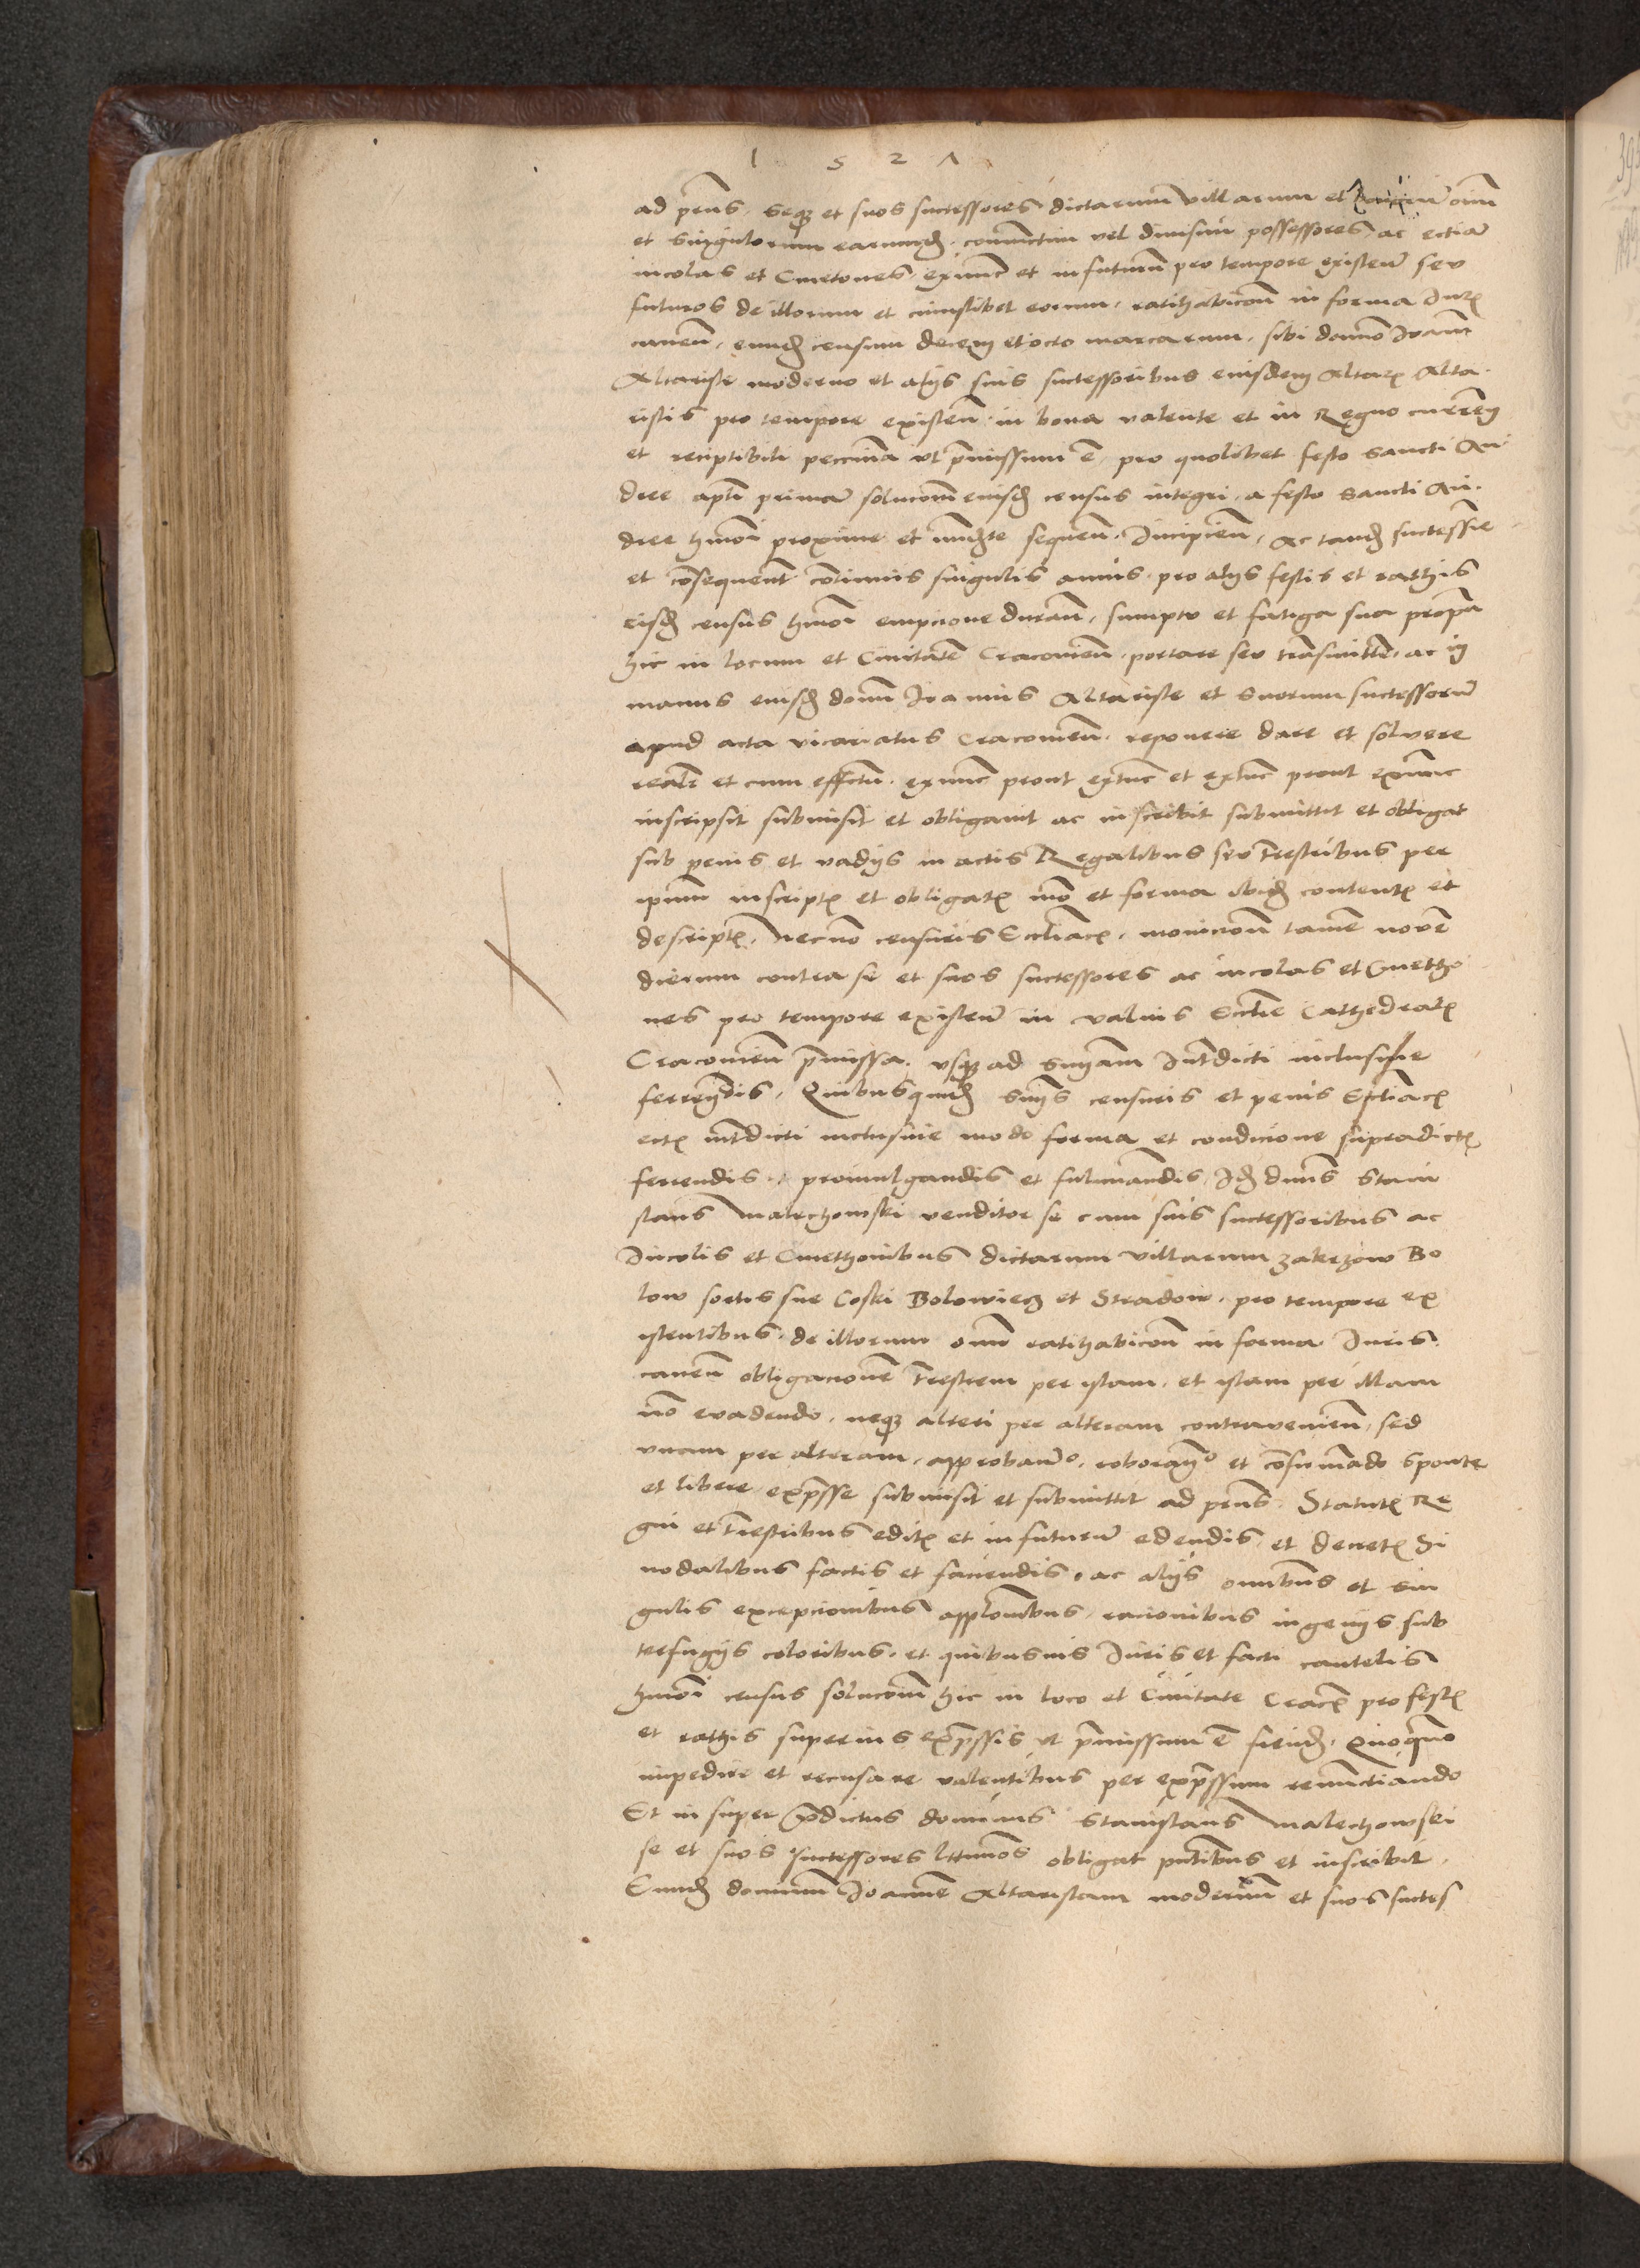 1521
ad pens. seqz et suos successores dictarum villarum et omīm
et singulorum earumd. coniunctim vel diuisim possessores ac ectiā
incolas et Cmetones exnunc et in futurum pro tempore existen̄ seu
futuros de illorum et cuiuslibet eorum ratihabicōn in forma Iur
cauen̄. eund censum decem et octo marcarum, sibi domino Ioanni
Altariste moderno et alijs suis successoribus eiusdem Altar Alta
ristis pro tempore existen̄. in bona valente et in Regno curren̄
et receptibili peccunia vt premissum ē, pro quolibet festo sancti An
dree apli primā solucōem eiusd census integri, a festo sancti An
dree hmōi proxime et immediate sequen̄. Incipien̄, Ac tand successiē
et consequent̄ continuis singulis annis pro alijs festis et rathis
eisd census hmōi empcione duran̄, sumptu et fatiga sua propa
hic in locum et Ciuitatē Cracouien̄ portare seu transmitte, ac in
manus eiusd domi Ioannis Altariste et suorum successorū
apud acta vicariatus Cracouien̄. reponere dare et soluere
realr et cum effectu. exnunc prout extūc et extūc prout exnunc
inscripsit submisit et obligauit ac inscribit submittit et obligat
sub penis et vadijs in actis Regalibus seu Trestribus per
ipsum inscript et obligat mō et forma ibid content et
descript. Necnō censuris Ecclīac, monicioni tamē nouē
dierum contra se et suos successores ac incolas et Cmetho
nes pro tempore existen̄ in valuis Ecclīe Cathedralr
Cracouien̄ pmissa. vsqz ad snīam Interdicti inclusiue
ferrendis, Quibusquid snijs censuris et penis Ecclīac
ect interdicti inclusiue modo forma et condicione supradict
ferrendis promulgandis et fulminandis, Id dnus Stani
slaus Malechowski venditor se cum suis successoribus ac
Incolis et Cmethonibus dictarum villarum Zakrzow Bo
low sortis sue Coski Bolowiecz et Stradow. pro tempore ex
istentibus, de illorum omī ratihabicōn in forma Iuris
cauen̄ obligacionē Trestrem per istam. et istam per illam
nō euadendo, neqz alteri per alteram contrauenien̄, sed
vnam per alteram, approbando, roborando et confirmādo sponte
et libere expsse submisit et submittit ad pens. Statut Re
gni et Trestribus edit et in futurū edendis et decret Si
nodalibus factis et faciendis, ac alijs omnibus et sin
gulis excepcionibus applōnibus, racionibus ingenijs sub
terfugijs coloribus. et quibusuis Iuris et facti cautelis
hmōi census solucōem hic in loco et Ciuitate Crac pro fest
et rathis superius expssis vt pmissum ē fiend. Quoquō
impedire et recusare valentibus per expssum renunctiando
Et insuper pdictus dominus Stanislaus Malechowski
se et suos successores lttimos obligat pntibus et inscribit,
Eund dominū Ioannē Altaristam modernū et suos succes